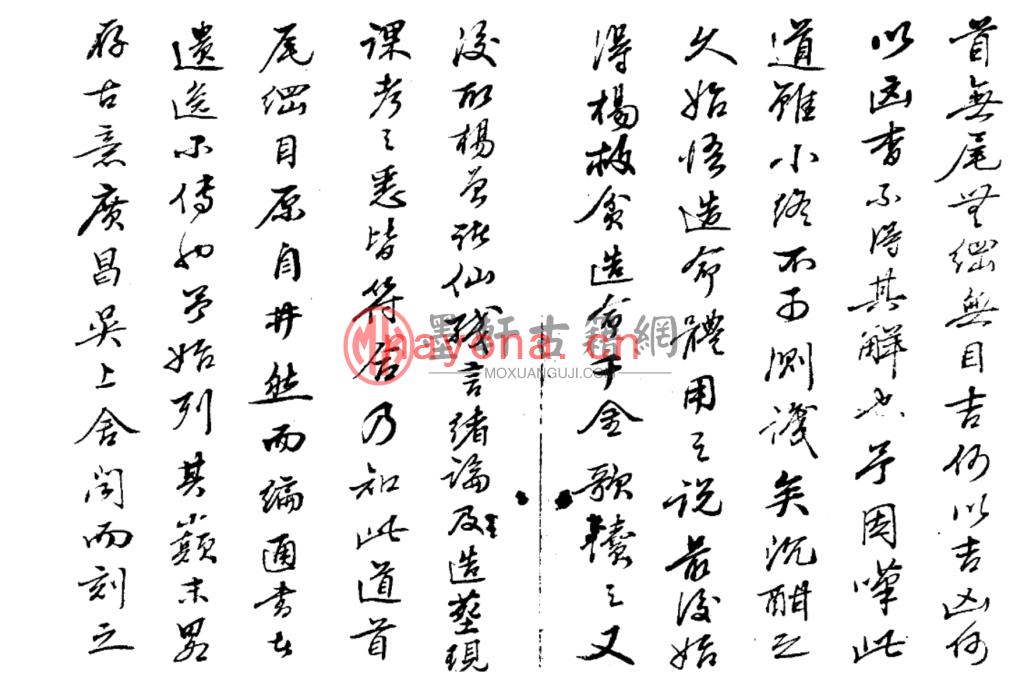 首無尾無綱無目吉何以吉凶何
以凶杳不得其解也予因嘆此
道雖小終不可測識矣沉酣之
久始悟造命體用之說最後始
得楊救貧造命千金歌讀之又
後取楊曾諸仙殘言緒論及造塟現
課考之悉皆符合乃知此道首
尾綱目原自井然而編通書者
遺逸不傳也予始列其顛末畧
存古意廣昌吳上舍聞而刻之
墨軒古籍網
MOXUANGUJI.COM
nayona.cn